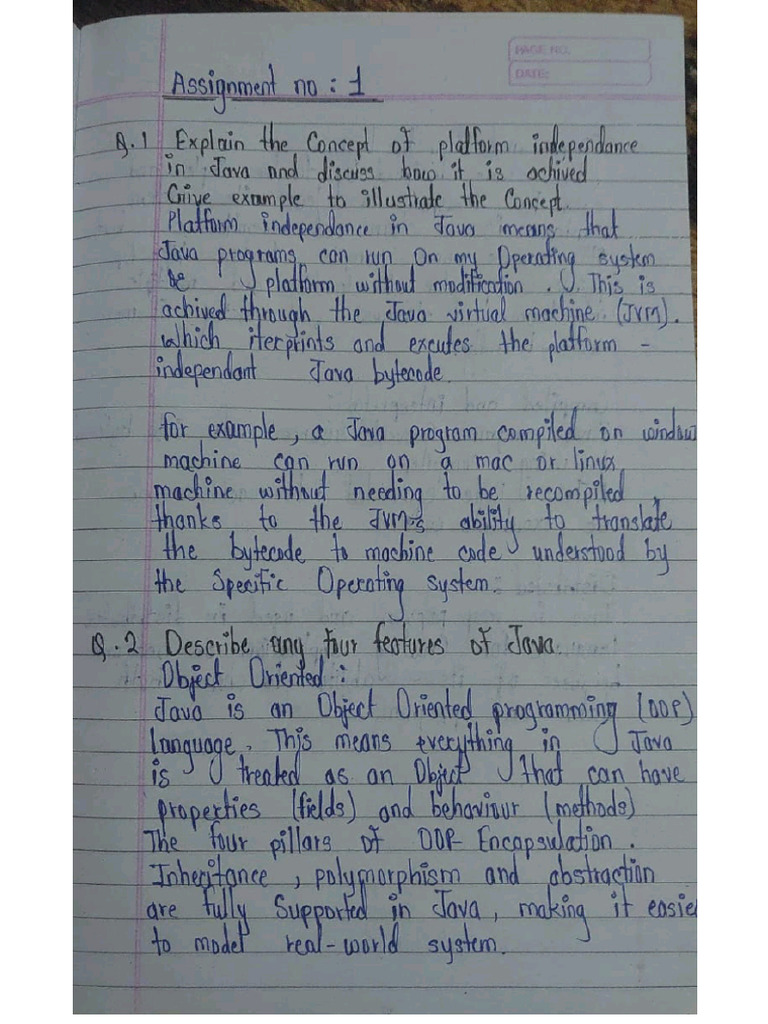 PAGE NO:
DATE:
Assignment no : 1
Q.1 Explain the Concept of platform independance
in Java and discuss how it is achived
Give example to illustrate the Concept.
Platform independance in Java means that
Java programs can run on my Operating system
platform without modification. This is
achived through the Java virtual machine (JVM).
which iterprints and excutes the platform -
independant Java bytecode.
for example, a Java program compiled on window
machine can run on a mac or linux
machine without needing to be recompiled,
thanks to the JVM's ability to translate
the bytecode to machine code understood by
the Specific Operating system.
Q.2 Describe any four features of Java.
Object Oriented :
Java is an Object Oriented programming (OOP)
language. This means everything in Java
is treated as an Object that can have
properties (fields) and behaviour (methods)
The four pillars of OOP- Encapsulation.
Inheritance, polymorphism and abstraction
are fully Supported in Java, making it easie
to model real-world system.